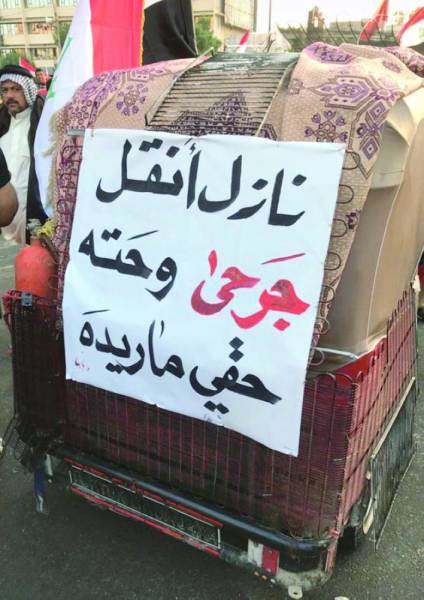 نازل أنقل
جرحى وحته
حقي ماريده